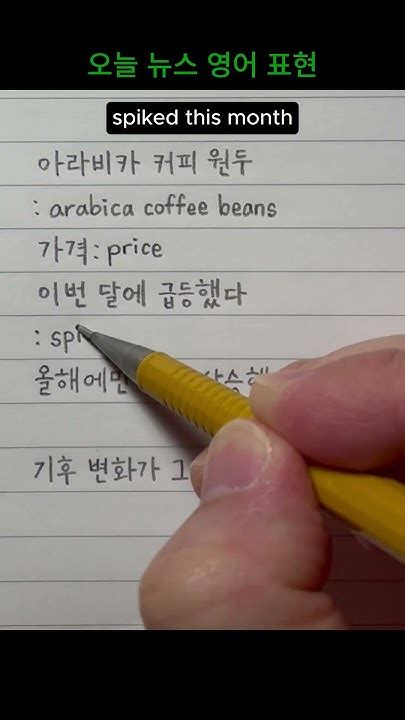 오늘 뉴스 영어 표현
spiked this month
아라비카 커피 원두
: arabica coffee beans
가격: price
이번 달에 급등했다
: sp
올해에만
기후 변화가 그